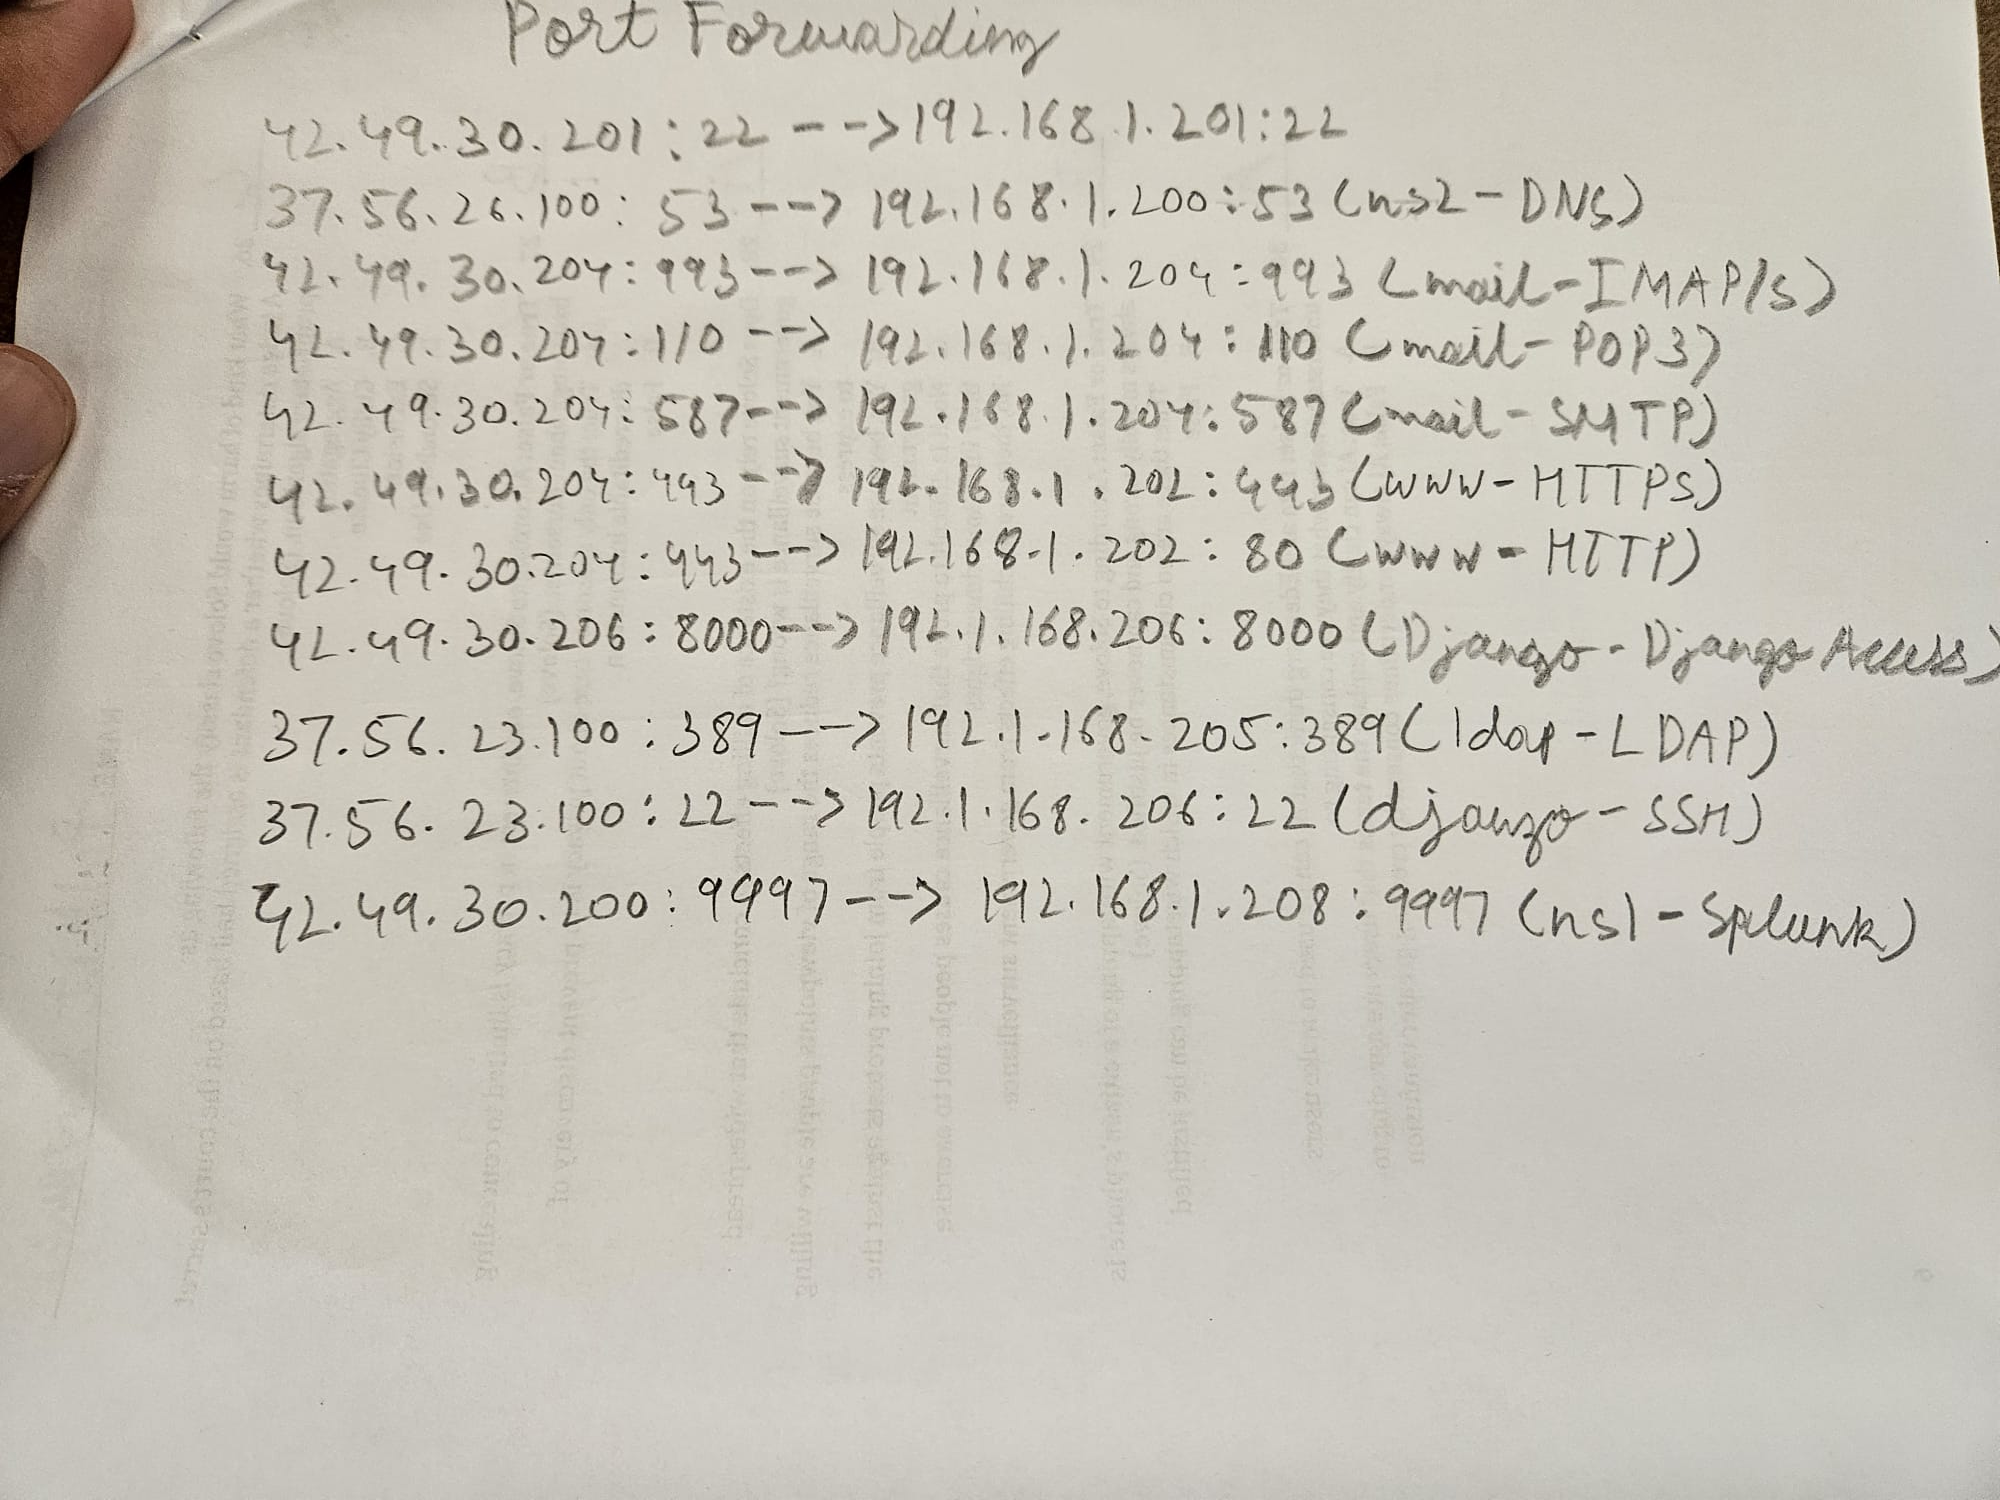 Port Forwarding
42.49.30.201:22 --> 192.168.1.201:22
37.56.26.100:53 --> 192.168.1.200:53 (ns2-DNS)
42.49.30.204:993 --> 192.168.1.204:993 (mail-IMAP/S)
42.49.30.204:110 --> 192.168.1.204:110 (mail-POP3)
42.49.30.204:587 --> 192.168.1.204:587 (mail-SMTP)
42.49.30.204:443 --> 192.168.1.202:443 (www-HTTPS)
42.49.30.204:443 --> 192.168.1.202:80 (www-HTTP)
42.49.30.206:8000 --> 192.1.168.206:8000 (Django-Django Access)
37.56.23.100:389 --> 192.1.168.205:389 (ldap-LDAP)
37.56.23.100:22 --> 192.1.168.206:22 (django-SSH)
42.49.30.200:9997 --> 192.168.1.208:9997 (ns1-Splunk)